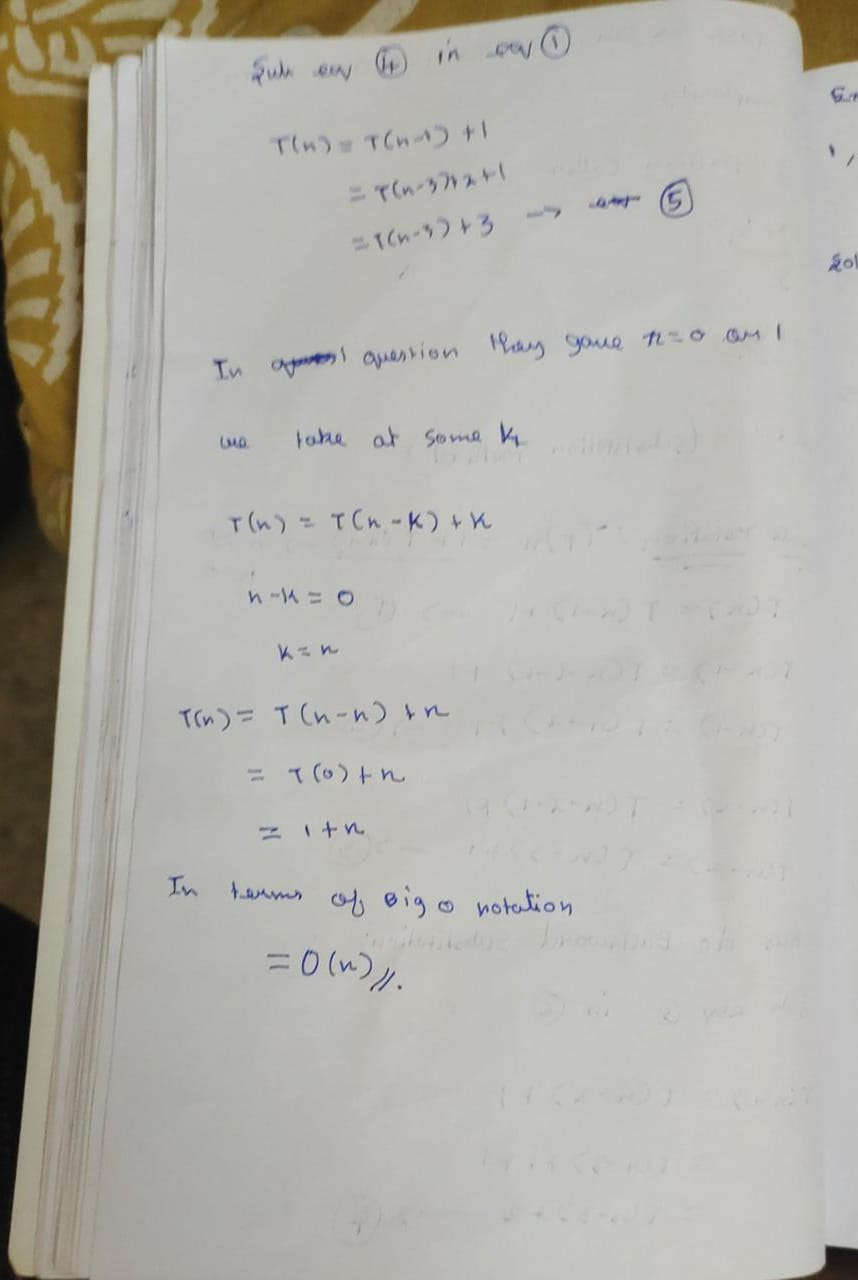 Sub eqv ④ in eqv ①
T(n) = T(n-1) + 1
= T(n-3)+2+1
= T(n-3) + 3 → ⑤
In question they gave n=0 or 1
we take at some k
T(n) = T(n-k) + k
n-k = 0
k = n
T(n) = T(n-n) + n
= T(0) + n
= 1 + n
In terms of Big O notation
= O(n)//.